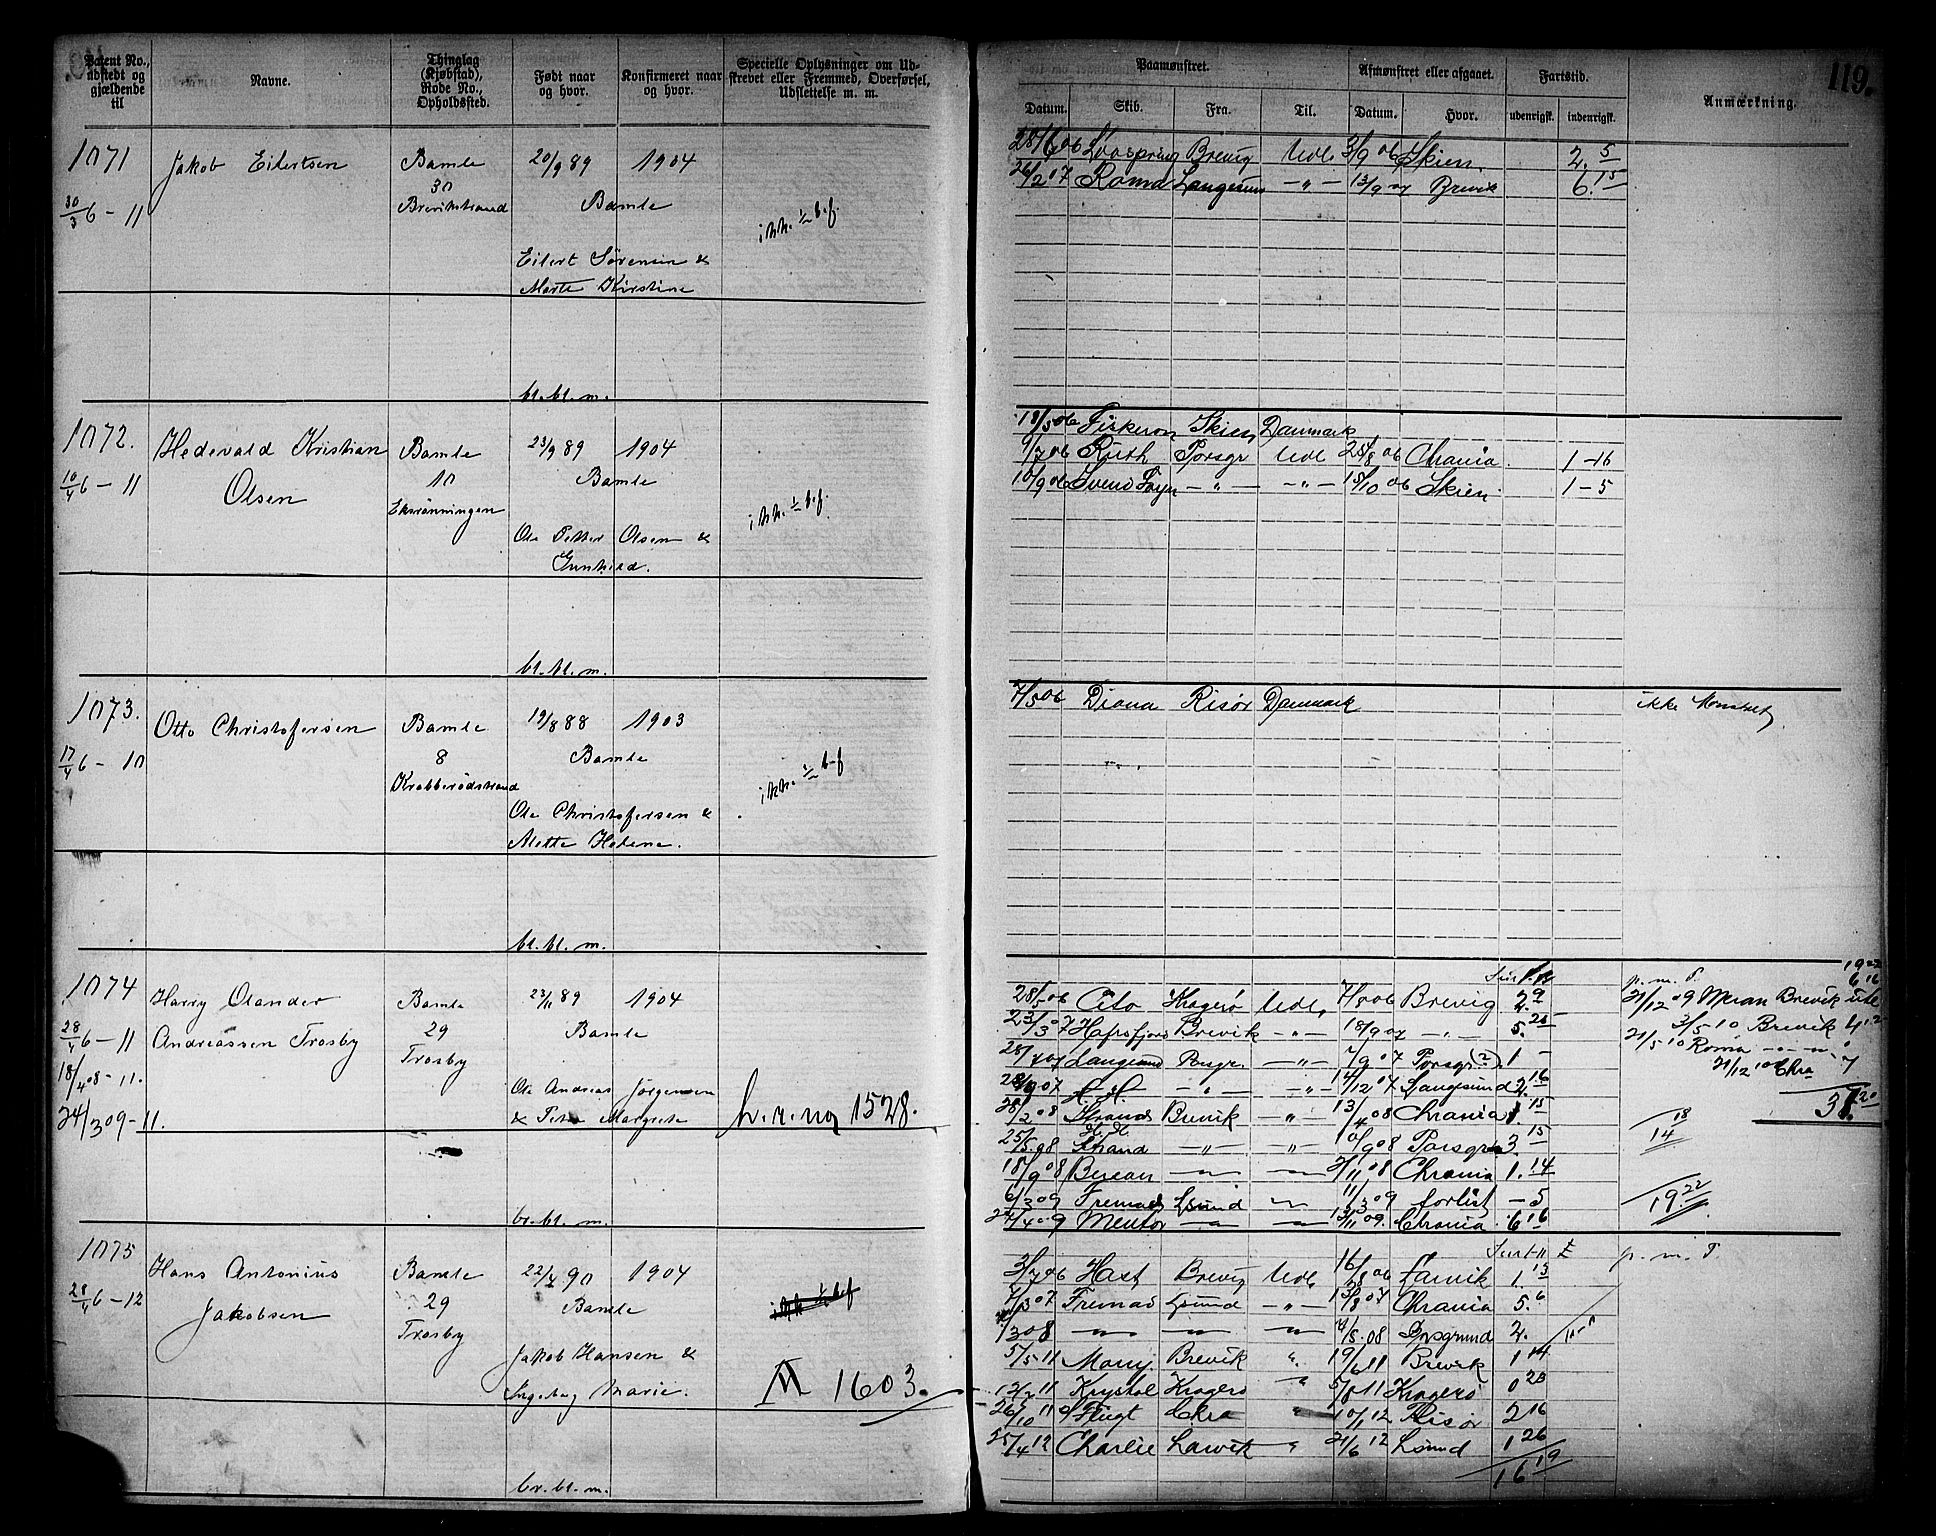 Patent No., udstedt og gjældende til
Navne.
Thinglag (Kjøbstad), Rode No., Opholdssted.
Født naar og hvor.
Konfirmeret naar og hvor.
Specielle Oplysninger om Udskrevet eller Fremmed, Overførsel, Udslettelse m. m.
Paamønstret.
Afmønstret eller afgaaet.
Fartstid.
Anmærkning.
119.
Datum. Skib. Fra. Til. Datum. Hvor. udenrigsk. indenrigsk.
1071 Jakob Eilertsen Bamle 20/9 89 1904
30 Bamle
30/3 6 - 11 Brevikstrand
Eilert Sørensen &
Marte Kirstine
bl. bl. m.
28/6 06 Brevig Udl 3/9 06 Skien 2. 5
26/2 07 Roma Langesund - " - 13/9 07 Brevik 6. 15
1072. Hedevald Kristian Bamle 23/9 89 1904
Olsen 10 Bamle
10/4 6 - 11 Eksrønningen
Ole Petter Olsen &
Gunhild.
bl. bl. m.
18/5 06 Skien Danmark
9/7 06 Ruth Porsgr Udl 28/8 06 Chrania 1 - 16
10/9 06 Svend Foyn - " - - " - 15/10 06 Skien 1 - 5
1073. Otto Christofersen Bamle 19/8 88 1903
8 Bamle
17/4 6 - 10 Krabberødstrand
Ole Christofersen &
Mette Helene.
bl. bl. m.
7/5 06 Diana Risør Danmark ikke Mønstret
1074 Harry Olander Bamle 23/11 89 1904
Andreassen Trosby 29 Bamle
28/4 6 - 11 Trosby
18/4 08 - 11.
24/3 09 - 11.
Ole Andreas Jørgensen
& Margrete
h. r. no 1528.
br. bl. m.
28/5 06 Cito Kragerø Udl. 7/8 06 Brevig 2. 9
23/3 07 Hafrsfjord Brevik - " - 18/9 07 - " - 5. 25
Langesund Porsgr. - " - 7/9 07 Porsgr (?) 1 -
H. H. - " - - " - 14/12 07 Langesund 2. 16
28/2 08 Strand Brevik - " - 13/4 08 Chrania 1. 15
25/5 08 Strand - " - - " - 10/9 08 Porsgrund 3. 15
18/9 08 Berean Chrania 1. 14
6/3 09 Fremad Lsund 11/3 09 forlist - 5
24/4 09 Mentor 13/11 09. Chrania 6 16
p. m. T.
21/12 09 Meran Brevik Udl
3/5 10 Brevik 4 12
21/5 10 Roma
21/12 10 Chra 7
31. 20
18
14
19 22
1075 Hans Antonius Bamle 22/4 90 1904
Jakobsen 29 Bamle
28/4 6 - 12 Trosby
Jakob Hansen &
Ingeborg Marie.
N 1603.
br. bl. m.
p. m. T.
3/7 06 Hast Brevig Udl 16/8 06 Larvik 1. 13
7/3 07 Fremad Lsund - " - 13/8 07 Chrania 5. 6
/3 08 4/5. 08 Porsgrund 2.
5/5 11 Brevik " 19/6 11 Brevik 1 14
12/7 11 Krystal Kragerø " 5/8 11 Kragerø 0 23
26/10 11 Flugt Chra " 10/1 12 Risør 2 16
25/4 12 Charlie Larvik " 21/6 12 Lsund 1 26
16 19